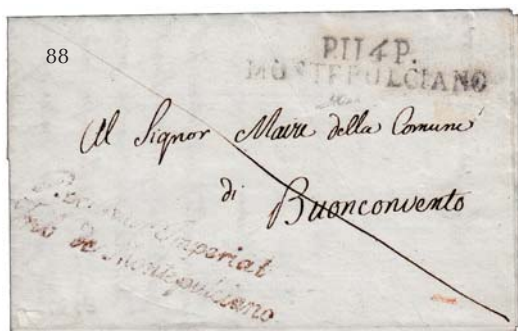 88
P.114.P.
MONTEPULCIANO
Al Signor Maire della Comune
di
Buonconvento
Imperial
de Montepulciano